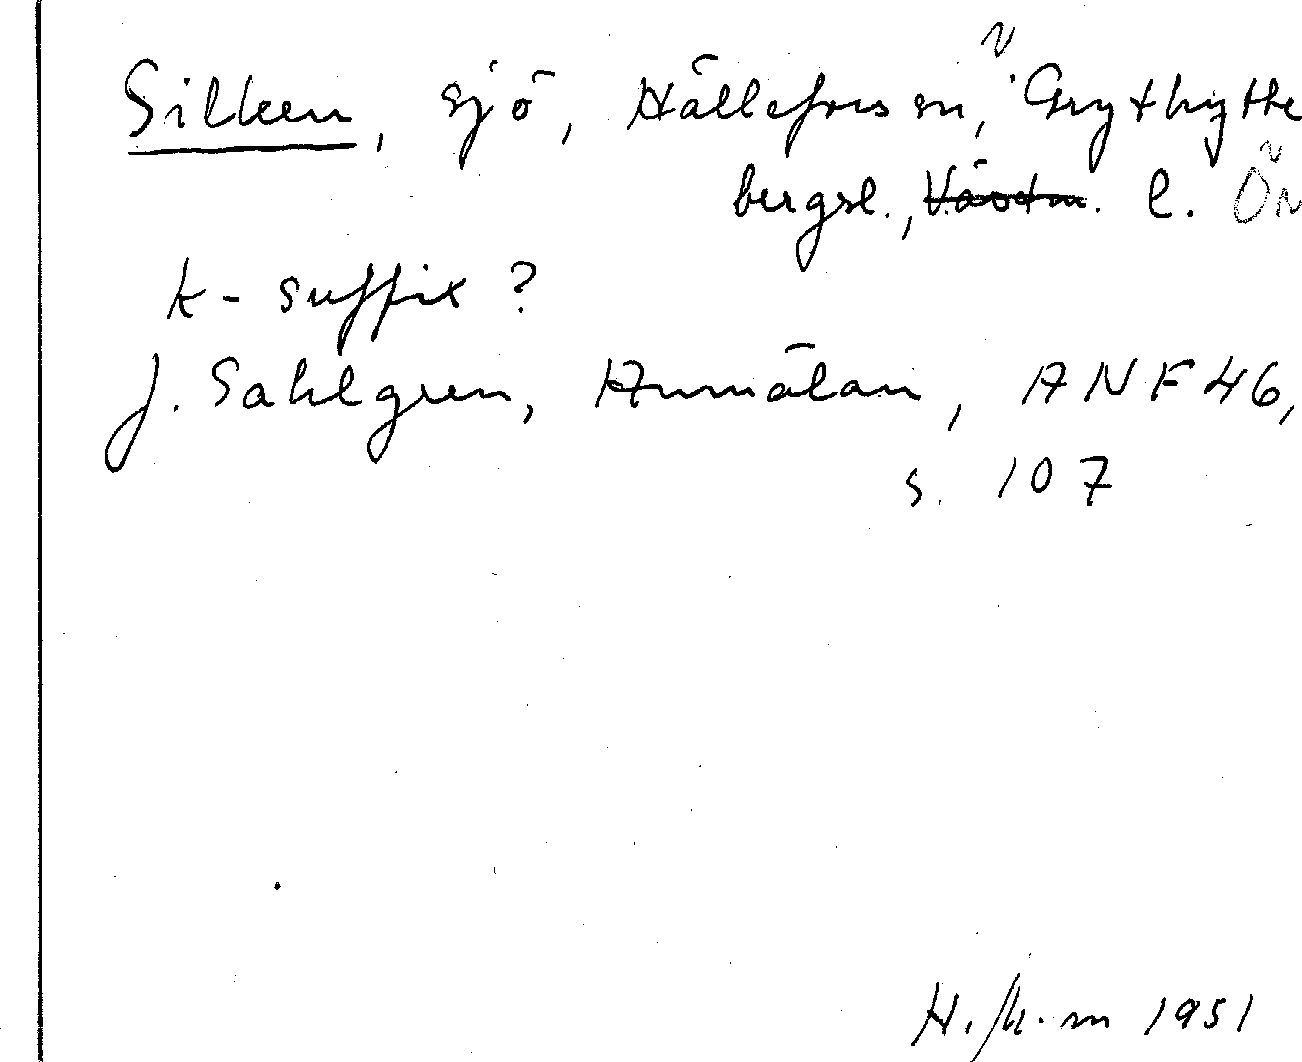 Silken, sjö, Hällefors sn, Grythytte
bergsl., Västm. l. Ör
k-suffix?
J. Sahlgren, Anmälan, ANF 46,
s. 107
1951